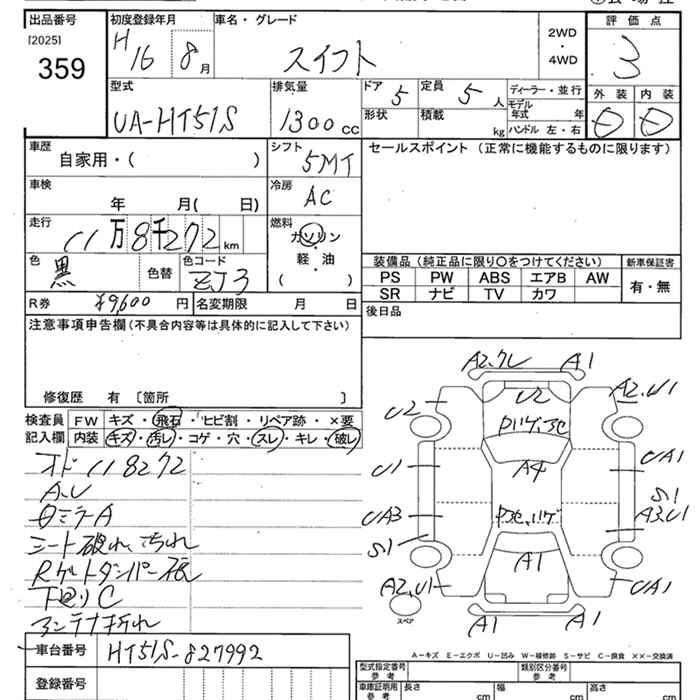 出品番号
[2025]
359
初度登録年月
H16 8月
車名・グレード
スイフト
2WD
・
4WD
評価点
3
型式
UA-HT51S
排気量
1300cc
ドア
5
定員
5人
形状
積載
kg
ディーラー・並行
モデル
年式 年
ハンドル 左・右
外装 内装
車歴
自家用・( )
シフト
5MT
車検
年 月( 日)
冷房
AC
走行
11万8千272km
燃料
ガソリン
・
軽・油
( )
色
黒
色替
色コード
ZJ3
R券 ¥9,600円
名変期限 月 日
セールスポイント (正常に機能するものに限ります)
装備品(純正品に限り○をつけてください)
PS PW ABS エアB AW
SR ナビ TV カワ
新車保証書
有・無
後日品
注意事項申告欄(不具合内容等は具体的に記入して下さい)
修復歴 有 〔箇所 〕
検査員 FW キズ・飛石・ヒビ割・リペア跡・×要
記入欄 内装 キズ・汚レ・コゲ・穴・スレ・キレ・破レ
オド118272
A.U
シート破れ、汚れ
下回りC
アンテナ折れ
車台番号
HT51S-827992
登録番号
A1
U2
A2,U1
U2
U1
A4
UA1
S1
A3,U1
UA3
S1
A1
A2,U1
UA1
スペア
A1
A1
A-キズ E-エクボ U-凹み W-補修跡 S-サビ C-腐食 ××-交換済
型式指定番号
参考
類別区分番号
参考
車庫証明用
参考
長さ
cm
幅
cm
高さ
cm